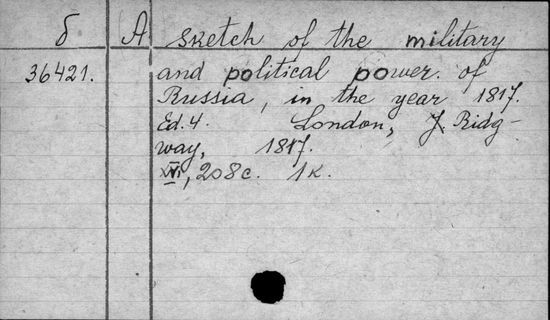 б A sketch of the military
36421. and political power of
Russia, in the year 1817.
Ed. 4. London, J. Ridg-
way, 1817.
XVI, 208 с. 1 к.